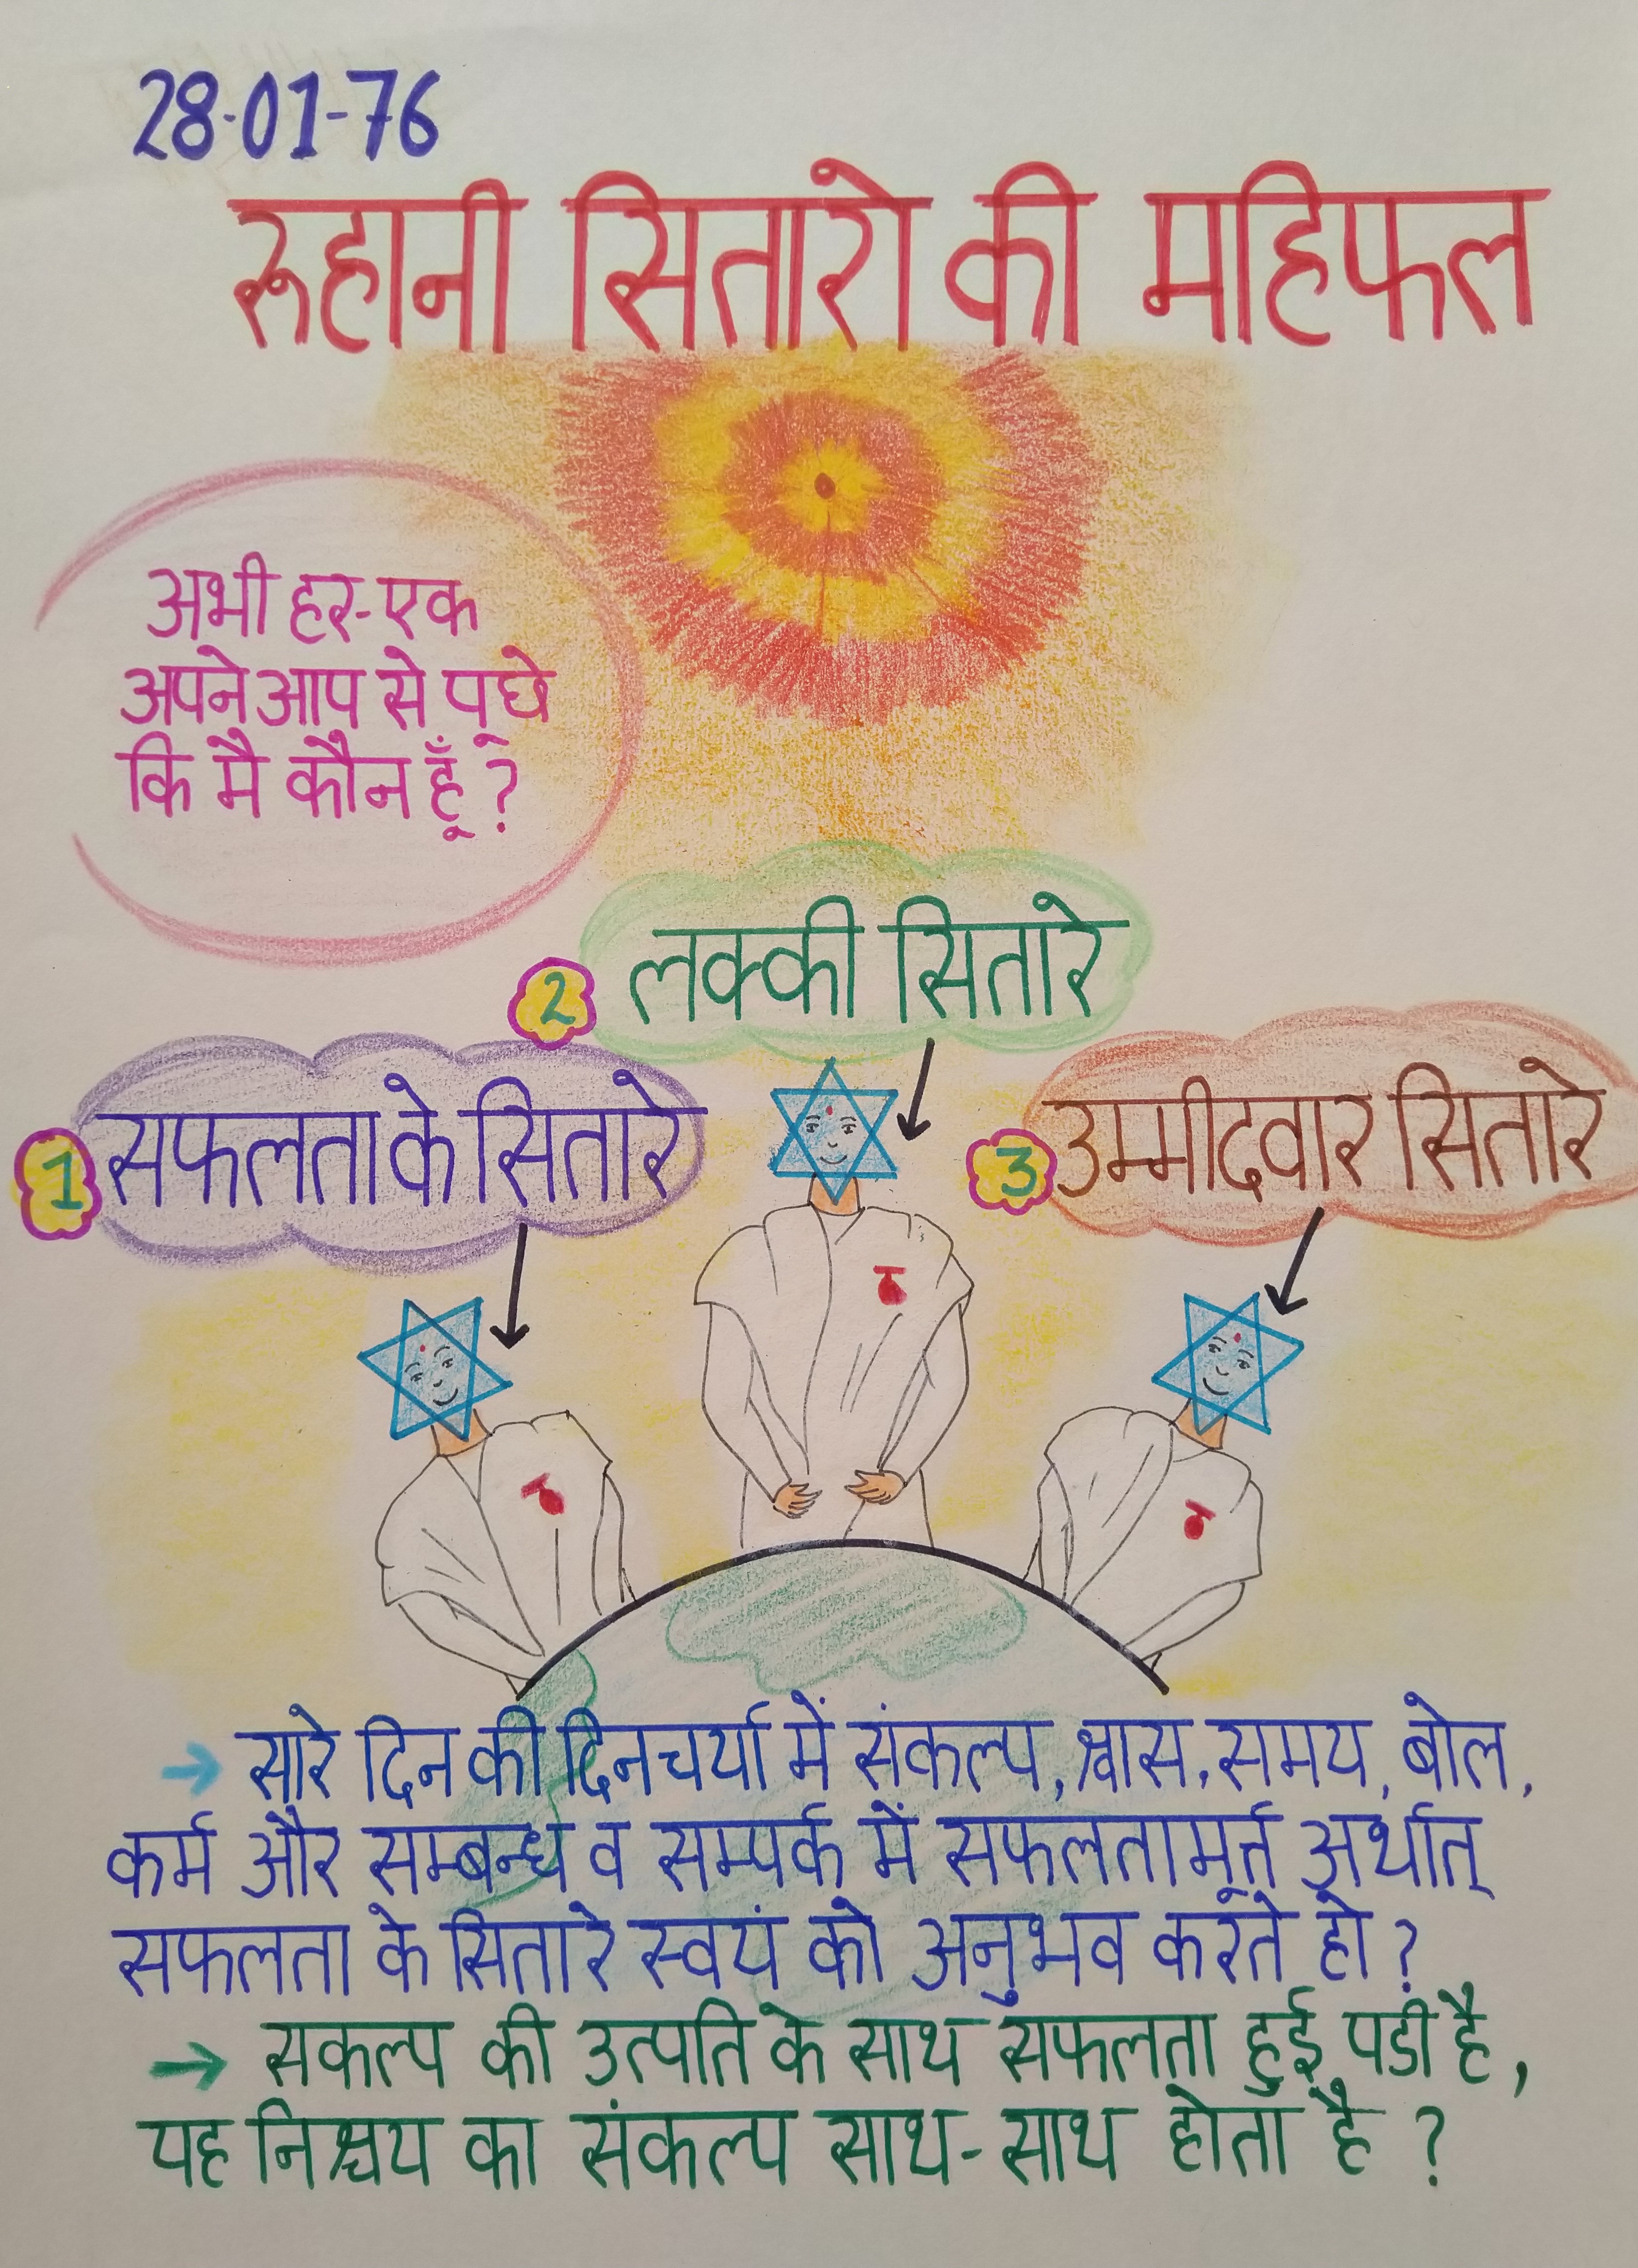 28-01-76
रूहानी सितारो की महिफल
अभी हर-एक
अपने आप से पूछे
कि मै कौन हूँ?
2 लक्की सितारे
1 सफलता के सितारे
3 उम्मीदवार सितारे
→ सारे दिन की दिनचर्या में संकल्प, श्वास, समय, बोल,
कर्म और सम्बन्ध व सम्पर्क में सफलतामूर्त्त अर्थात्
सफलता के सितारे स्वयं को अनुभव करते हो?
→ सकल्प की उत्पति के साथ सफलता हुई पडी है,
यह निश्चय का संकल्प साथ-साथ होता है?